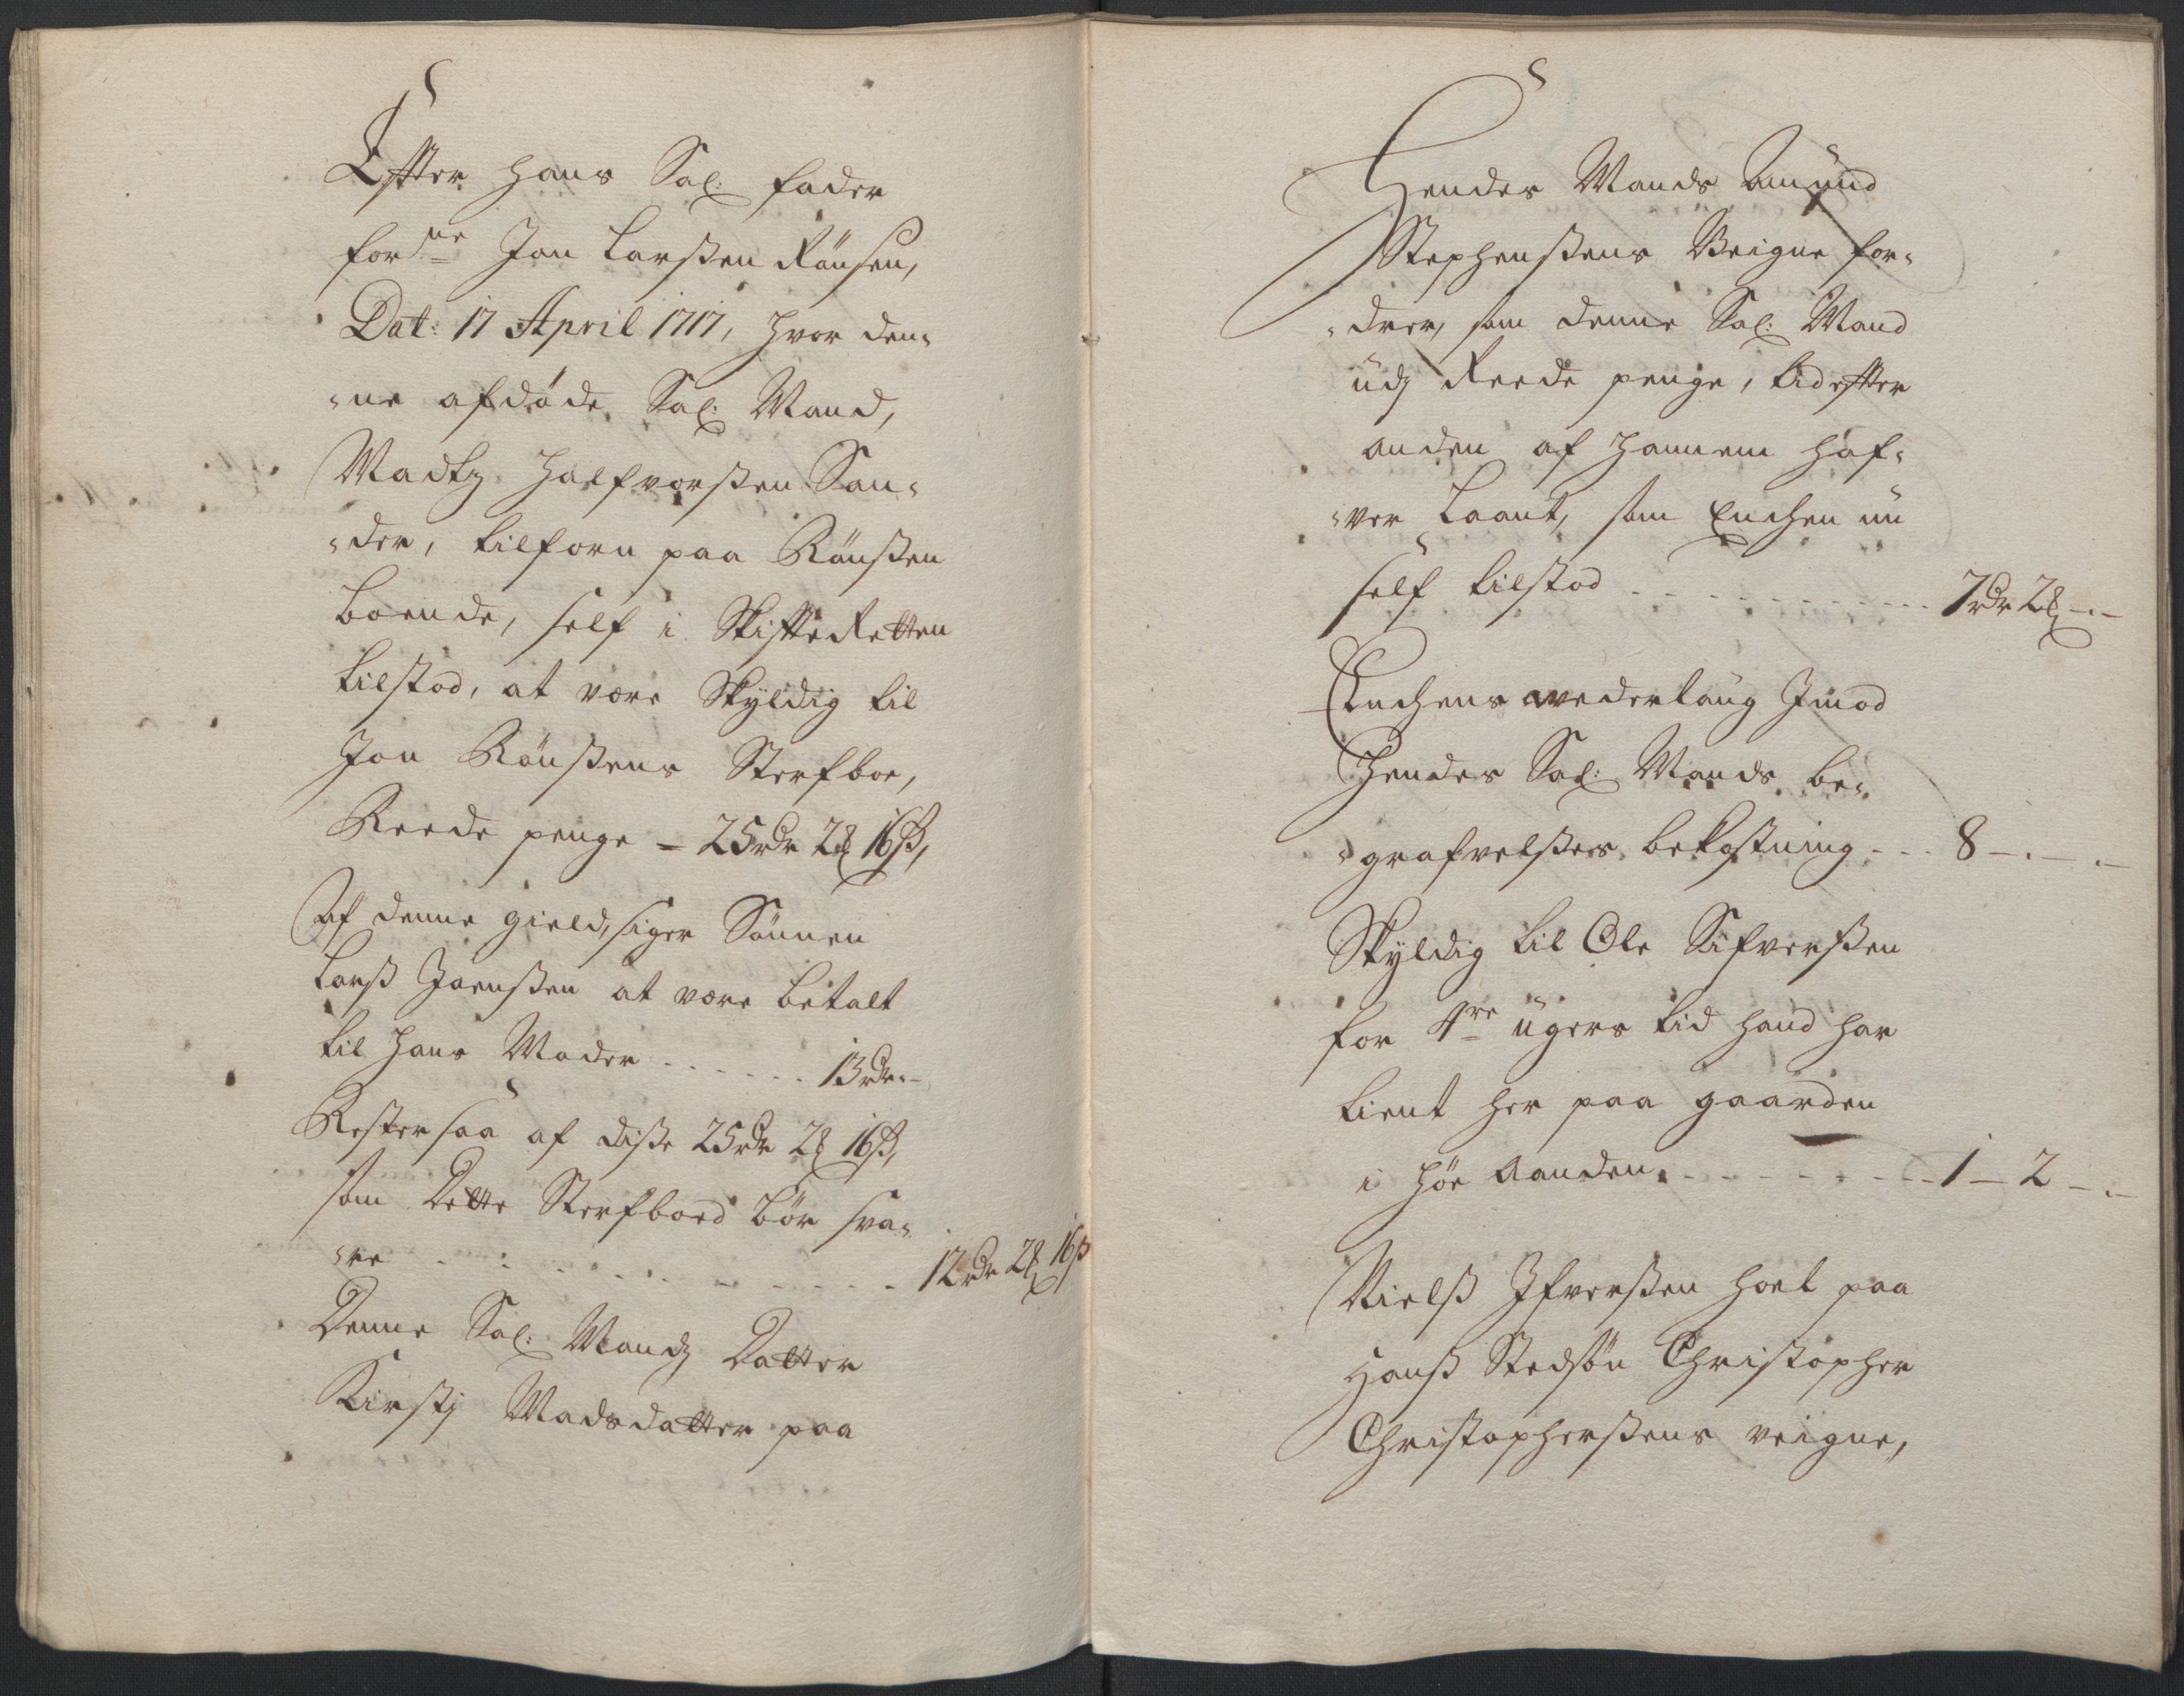 Efter hans Sal: fader
forne Jon Larssen Rønsen,
Dat: 17 April 1717, hvor den¬
¬ne afdøde Sal: Mand,
Madtz Halfvorssen San¬
¬der, tilforn paa Rønssen
boende, self i SkifteRetten
tilstod, at være skyldig til
Jon Rønssens Sterfboe,
Reede penge = 25 rdr 2 ℔ 16 ß,
Af denne gield, siger Sønnen
Larss Joenssen at være betalt
til hans Moder . . . . . . 13 rdr. -
Rester saa af disse 25 rdr 2 ℔ 16 ß,
som Dette Sterfboed bør sva¬
¬re . . . . . . . . . . 12 rdr 2 ℔ 16 ß
Denne Sal: Mandz Datter
Kirstj Madsdatter paa
Hendes Mands Amund
Stephenssens Veigne for¬
¬drer, som denne Sal: Mand
udj Reede penge, tid efter
anden af hannem haf¬
¬ver Laant, som Enchen nu
self tilstod . . . . . . . . . . 7 rdr 2 ℔ - . -
Enchens vederlaug Jmod
Hendes Sal: Mands be¬
¬grafvelsses bekostning - - - 8 - . - . -
Skyldig til Ole Sifverssen
for 4re ugers tid hand har
tient her paa gaarden
i høe Aanden. - - - - - - - - 1 - 2 - . -
Nielss Jfverssen Hoel paa
Hanss Stedsøn Christopher
Christopherssens veigne,